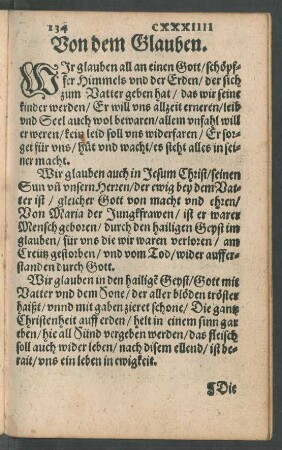 134 CXXXIIII
Von dem Glauben.
WJr glauben all an einen Gott/ schöpf-
fer Himmels vnd der Erden/ der sich
zum Vatter geben hat/ das wir seine
kinder werden/ Er will vns allzeit erneren/ leib
vnd Seel auch wol bewaren/ allem vnfahl will
er weren/ kein leid soll vns widerfaren/ Er sor-
get für vns/ hüt vnd wacht/ es steht alles in sei-
ner macht.
Wir glauben auch in Jesum Christ/ seinen
Sun vñ vnsern Herren/ der ewig bey dem Vat-
ter ist/ gleicher Gott von macht vnd ehren/
Von Maria der Jungkfrawen/ ist er warer
Mensch geboren/ durch den hailigen Geyst im
glauben/ für vns die wir waren verloren/ am
Creutz gestorben/ vnd vom Tod/ wider auffer-
standen durch Gott.
Wir glauben in den hailigẽ Geyst/ Gott mit
Vatter vnd dem Sone/ der aller blöden tröster
haißt/ vnnd mit gaben zieret schone/ Die gantz
Christenheit auff erden/ helt in einem sinn gar
eben/ hie all Sünd vergeben werden/ das fleisch
soll auch wider leben/ nach disem ellend/ ist be-
rait/ vns ein leben in ewigkeit.
¶Die